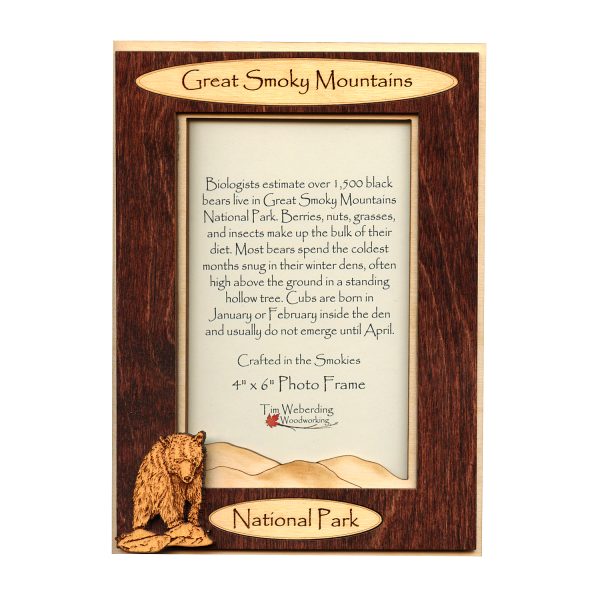 Great Smoky Mountains
Biologists estimate over 1,500 black
bears live in Great Smoky Mountains
National Park. Berries, nuts, grasses,
and insects make up the bulk of their
diet. Most bears spend the coldest
months snug in their winter dens, often
high above the ground in a standing
hollow tree. Cubs are born in
January or February inside the den
and usually do not emerge until April.
Crafted in the Smokies
4" x 6" Photo Frame
Tim Weberding
Woodworking
National Park